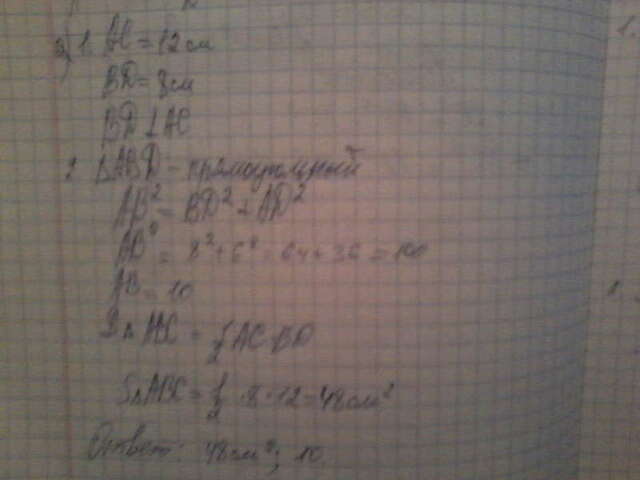 3) 1. AC = 12 см
BD = 8 см
BD ⊥ AC
2. ΔABD - прямоугольный
AB² = BD² + AD²
AB² = 8² + 6² = 64 + 36 = 100
AB = 10
SΔ ABC = 1/2 AC · BD
SΔABC = 1/2 · 8 · 12 = 48 см²
Ответ: 48 см²; 10.
1.
1.